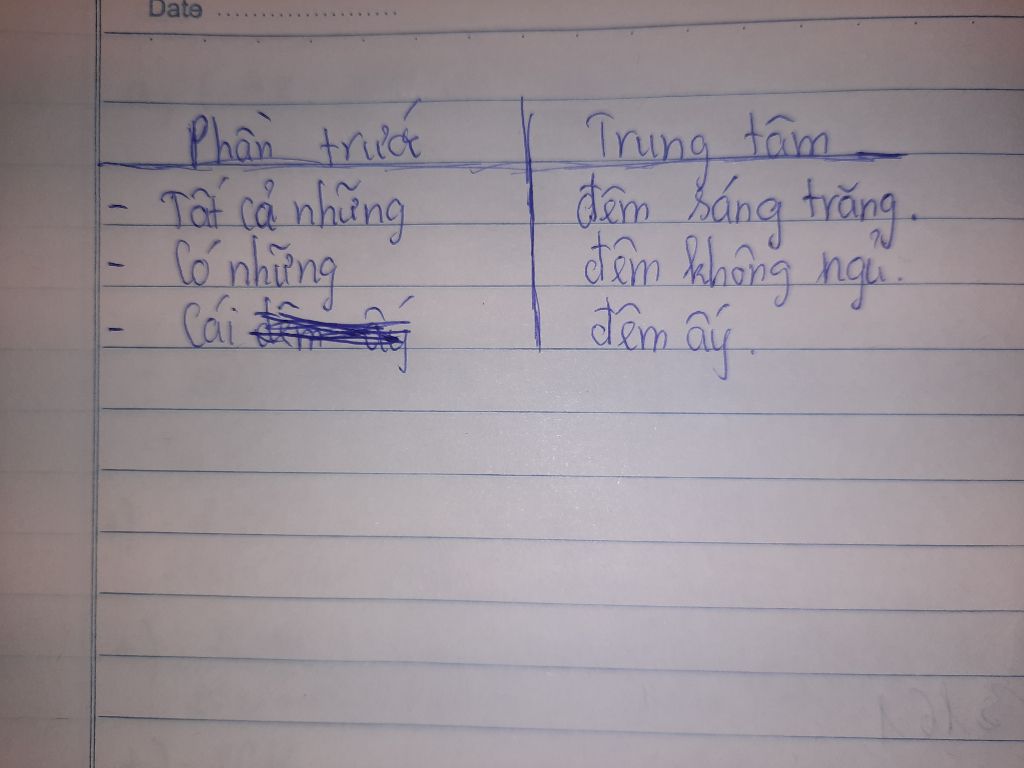 Date ....................
Phần trước Trung tâm
- Tất cả những đêm sáng trăng.
- Có những đêm không ngủ.
- Cái đêm ấy đêm ấy.